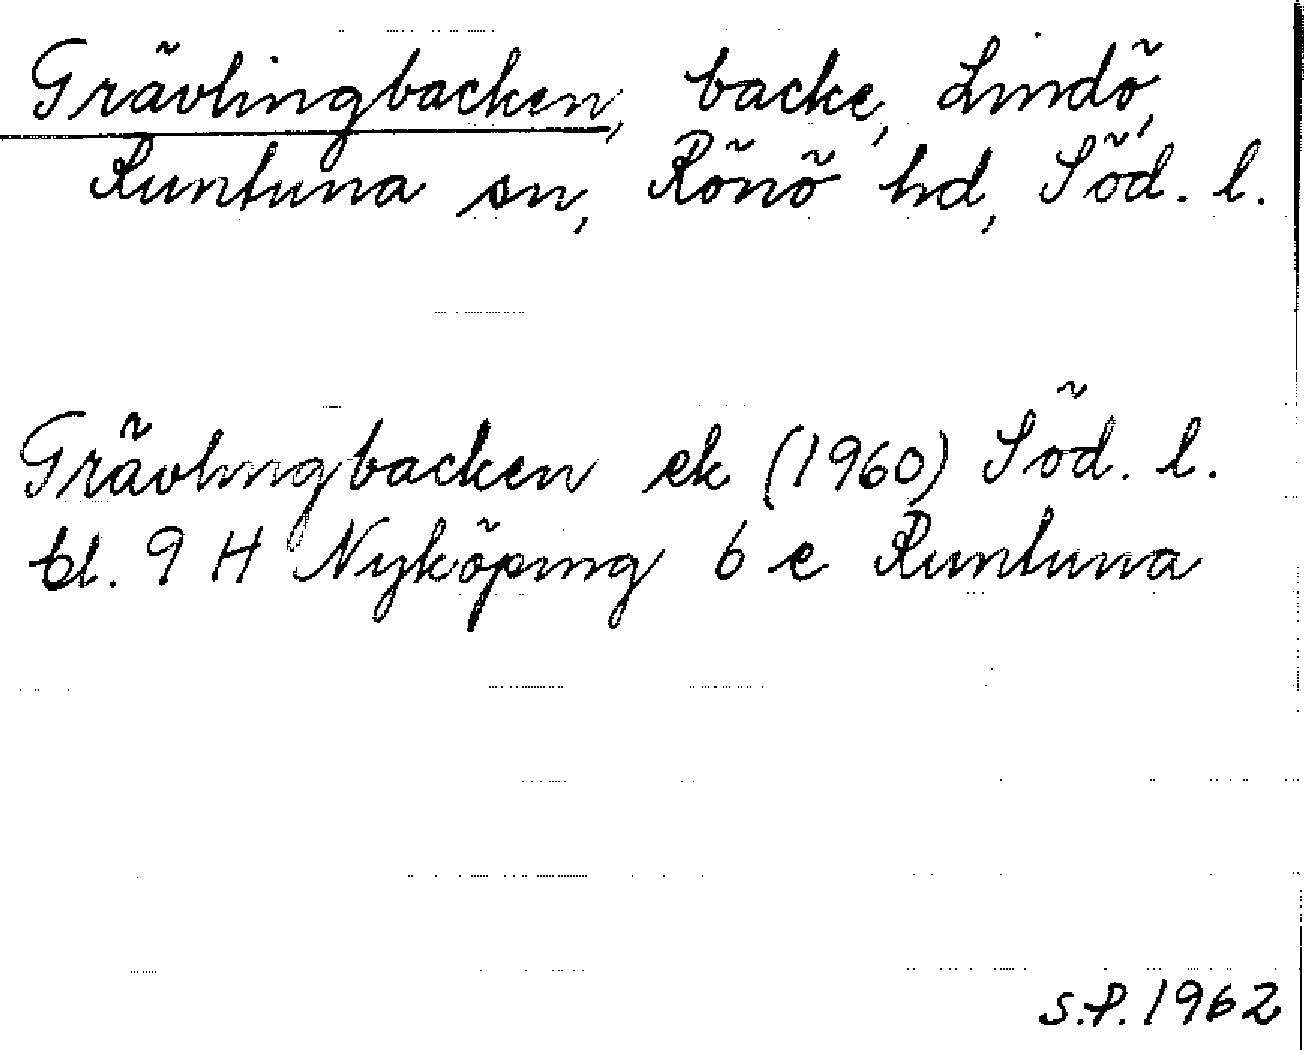 Grävlingbacken, backe, Lindö,
Runtuna sn, Rönö hd, Söd. l.
Grävlingbacken ek (1960) Söd. l.
bl. 9 H Nyköping 6 e Runtuna
S.P. 1962